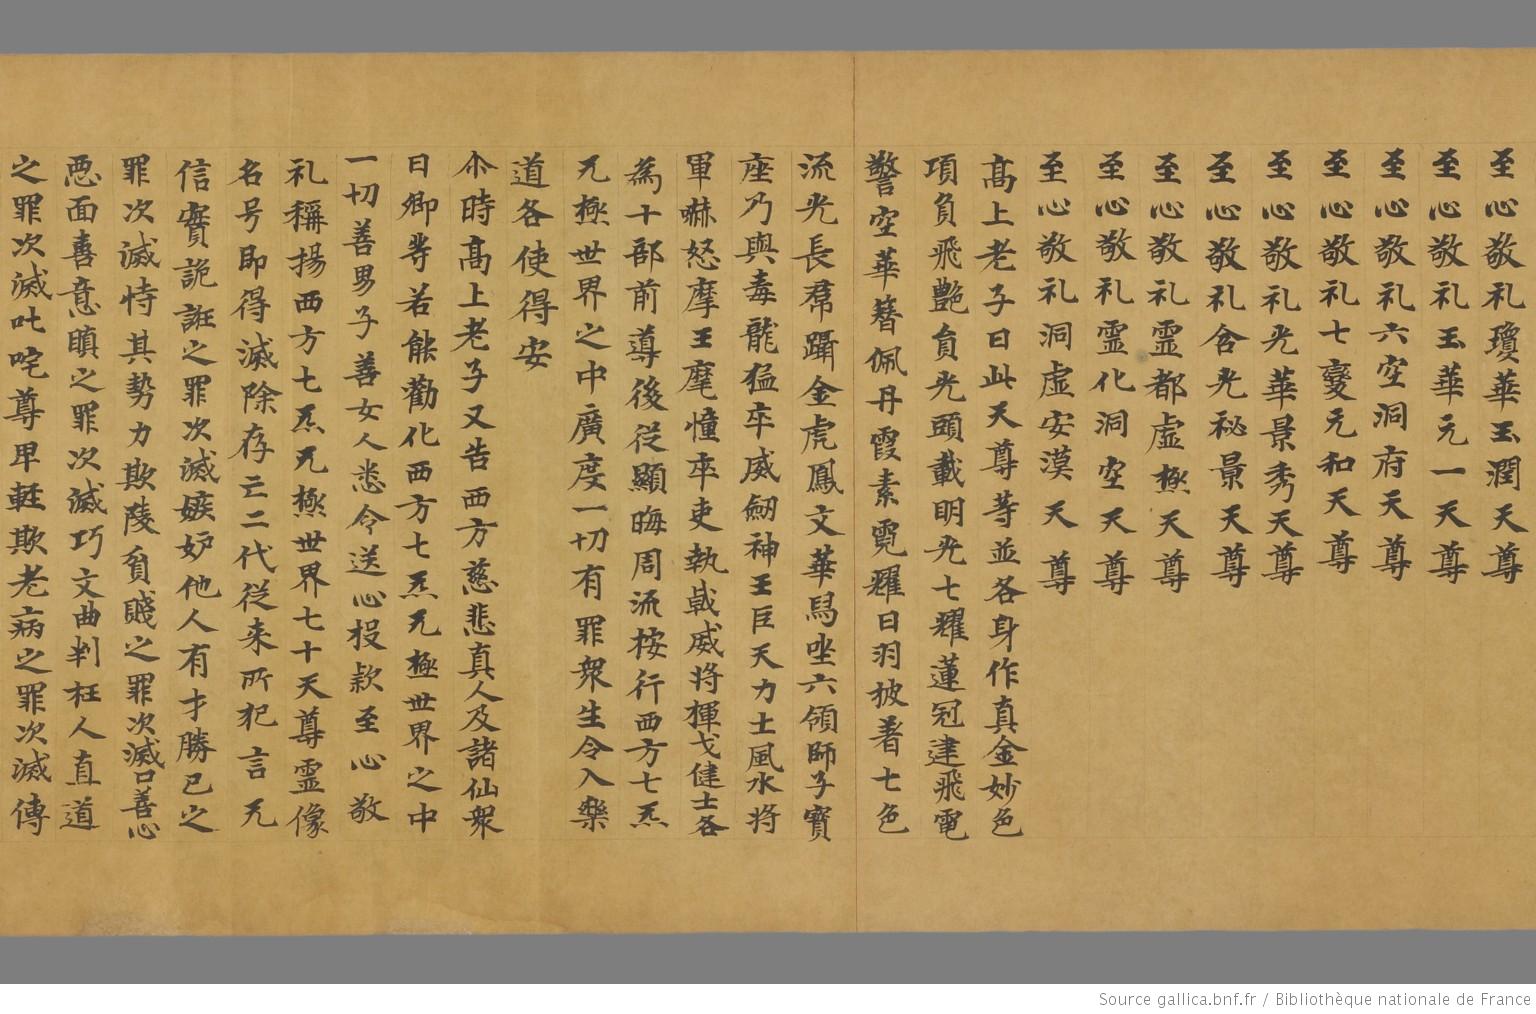 至心敬礼瓊華玉潤天尊
至心敬礼玉華元一天尊
至心敬礼六空洞府天尊
至心敬礼七變元和天尊
至心敬礼光華景秀天尊
至心敬礼含光秘景天尊
至心敬礼靈都虛極天尊
至心敬礼靈化洞空天尊
至心敬礼洞虛安漠天尊
高上老子曰此天尊等並各身作真金妙色
項負飛艷負光頭戴明光七耀蓮冠建飛電
警空華簪佩丹霞素霓耀日羽披著七色
流光長帬躡金虎鳳文華舄坐六領師子寶
座乃與毒龍猛卒威劒神王巨天力士風水將
軍嚇怒摩王麾憧卒吏執戟威將揮戈健士各
為十部前導後從顯晦周流桉行西方七炁
无極世界之中廣度一切有罪衆生令入樂
道各使得安
尒時高上老子又告西方慈悲真人及諸仙衆
曰卿等若能勸化西方七炁无極世界之中
一切善男子善女人悉令送心投款至心敬
礼稱揚西方七炁无極世界七十天尊靈像
名号即得滅除存亡二代從来所犯言无
信實詭誑之罪次滅嫉妒他人有才勝己之
罪次滅恃其勢力欺陵貧賤之罪次滅口善心
悪面喜意瞋之罪次滅巧文曲判枉人直道
之罪次滅吐咤尊卑輕欺老病之罪次滅傳
Source gallica.bnf.fr / Bibliothèque nationale de France